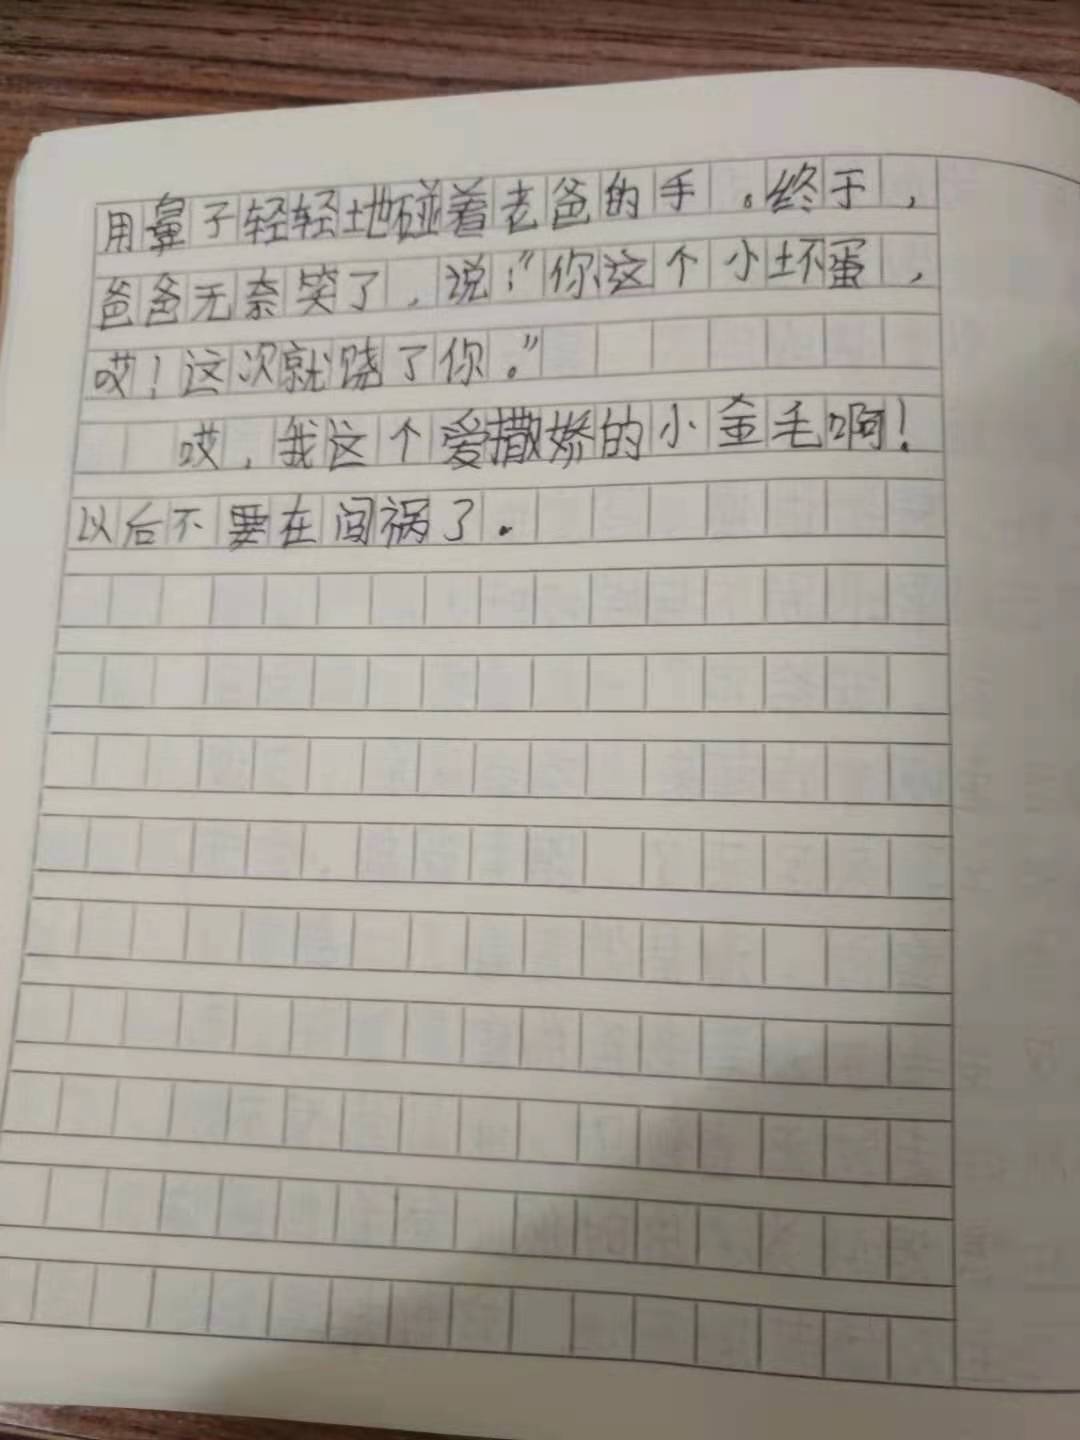 用鼻子轻轻地碰着老爸的手。终于，
爸爸无奈笑了，说：“你这个小坏蛋，
哎！这次就饶了你。”
哎，我这个爱撒娇的小金毛啊！
以后不要在闯祸了．